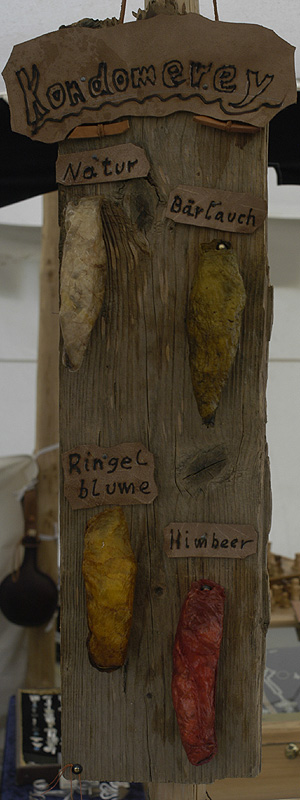 Kondomerey
Natur
Bärlauch
Ringel
blume
Himbeer